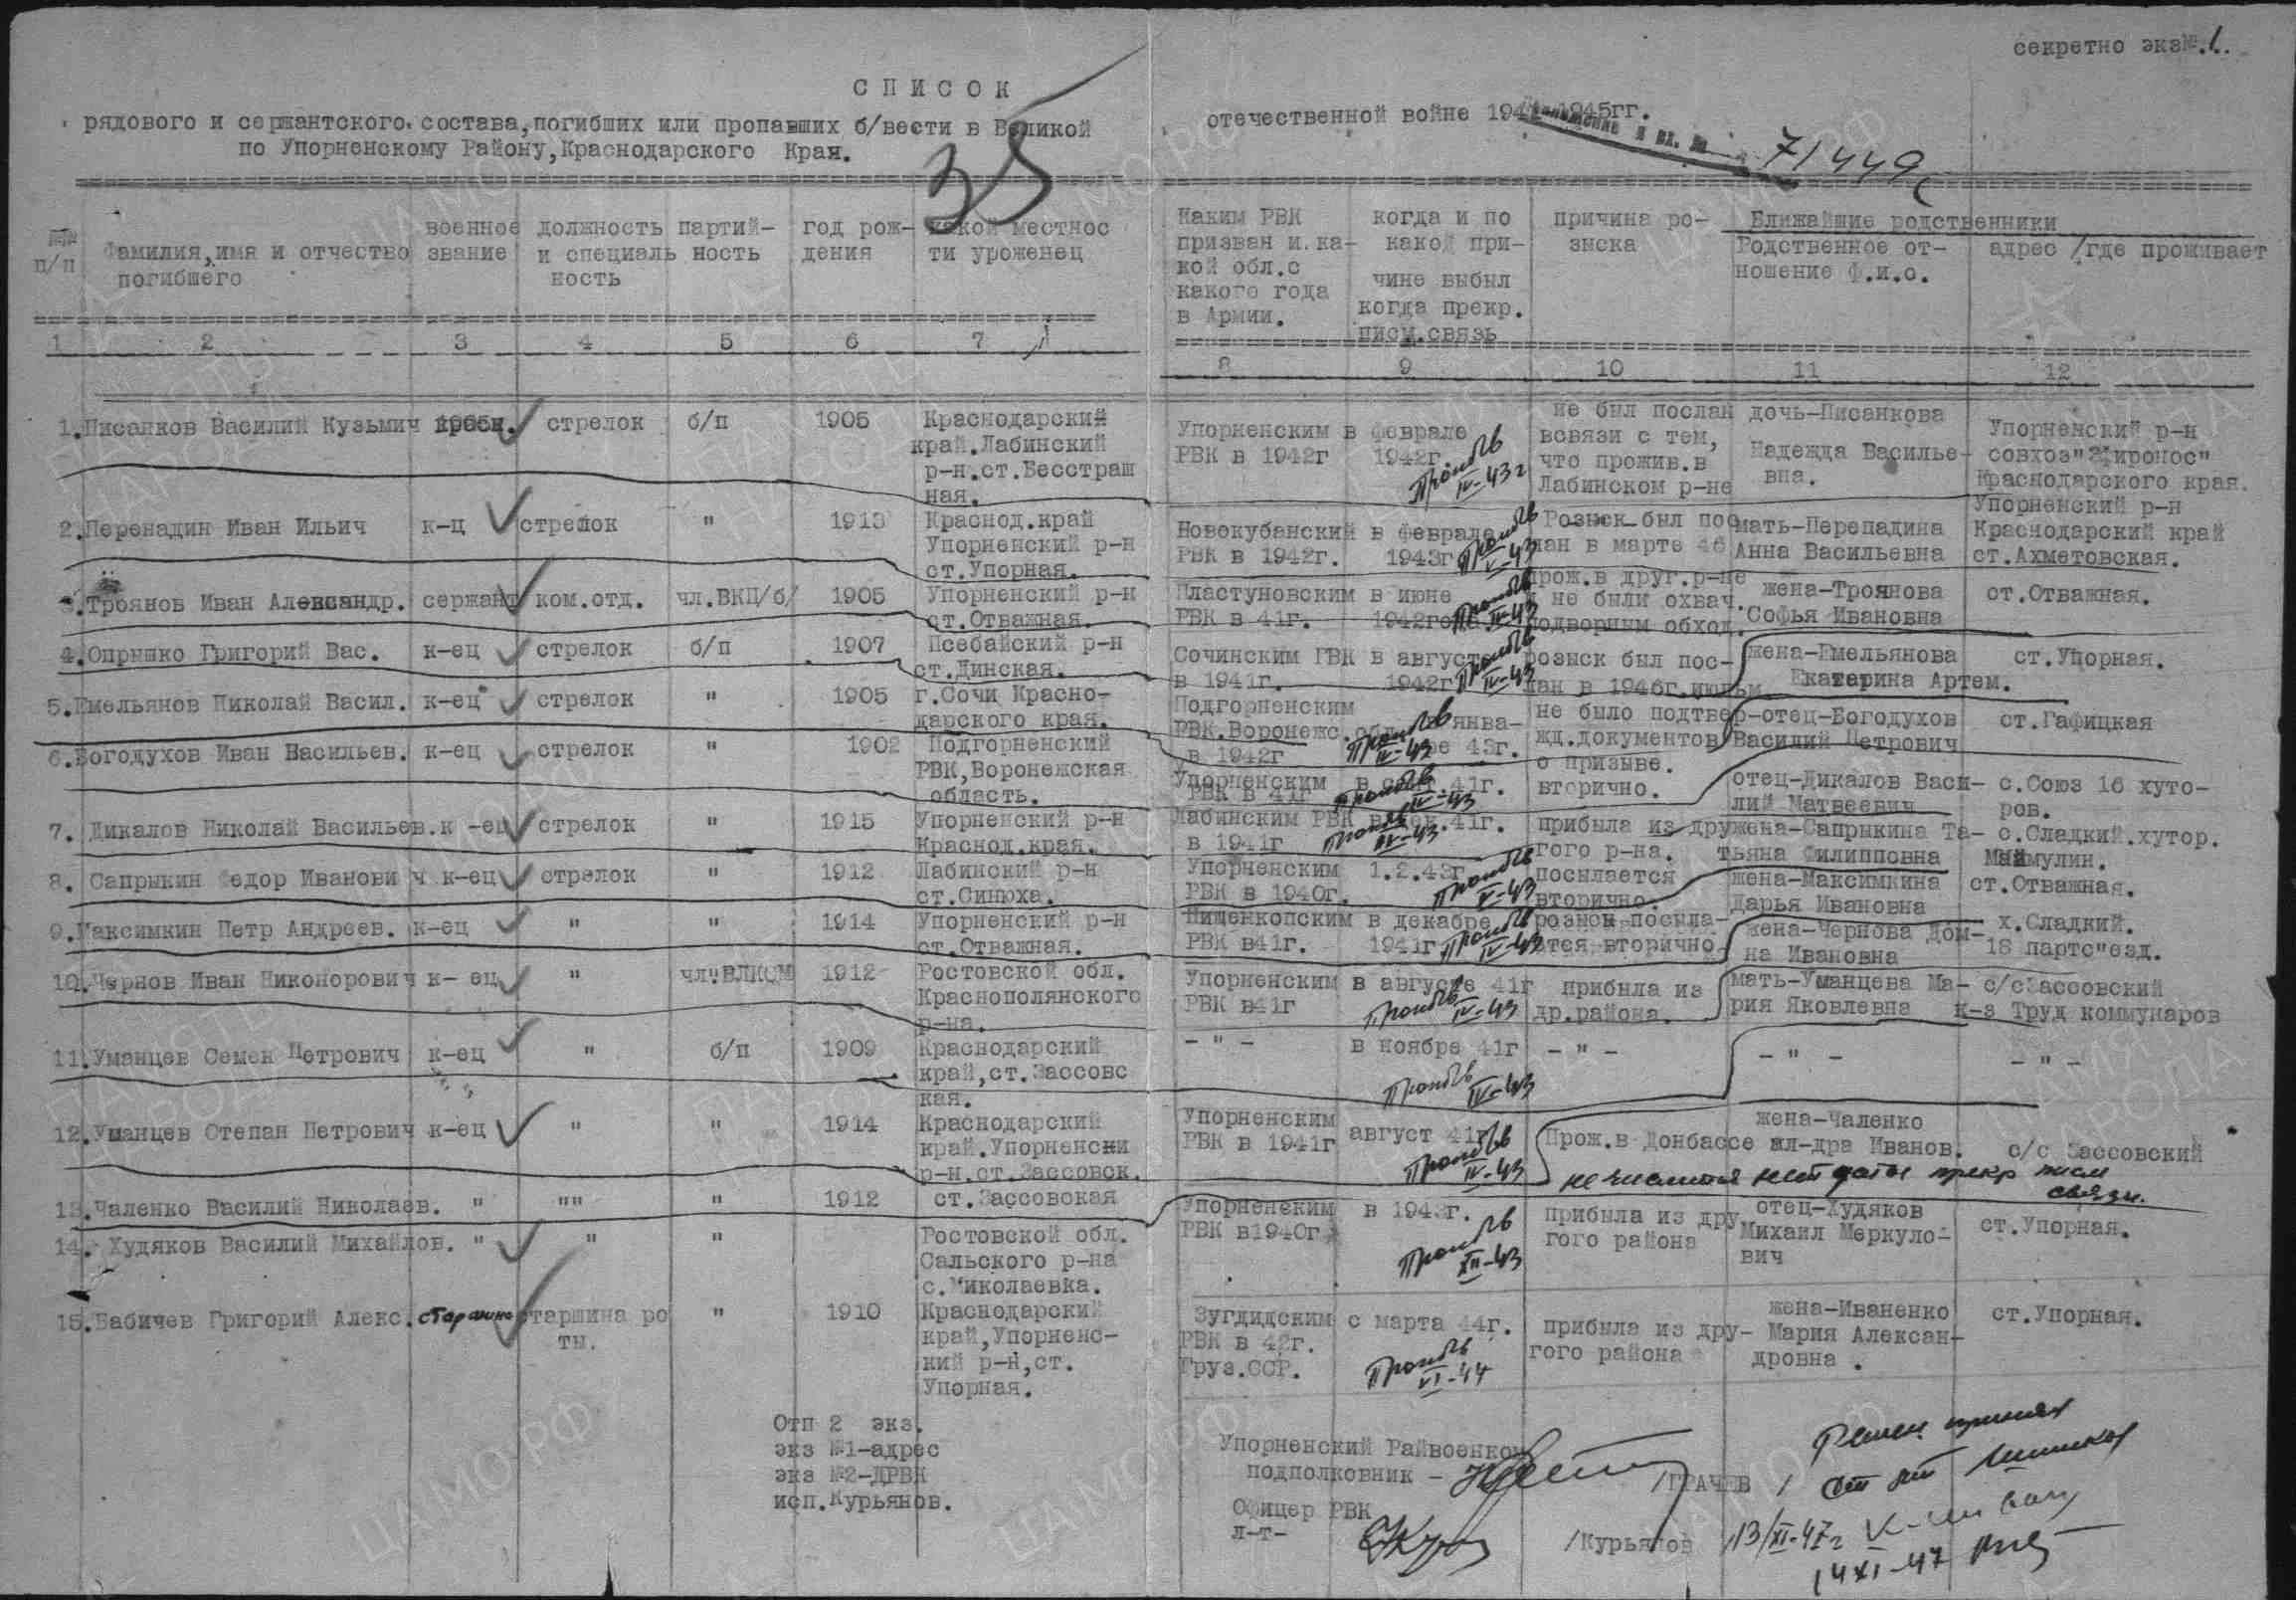 секретно экз№.1.
СПИСОК
рядового и сержантского состава, погибших или пропавших б/вести в Великой отечественной войне 1941-1945гг.
по Упорненскому Району, Краснодарского Края.
35
71449
№№ п/п
Фамилия, имя и отчество погибшего
военное звание
должность и специаль ность
партий- ность
год рож- дения
какой местнос ти уроженец
Каким РВК призван и.ка- кой обл.с какого года в Армии.
когда и по какой при- чине выбыл когда прекр. писм.связь
причина ро- зыска
Ближайшие родственники
Родственное от- ношение ф.и.о.
адрес /где проживает
1 2 3 4 5 6 7
8 9 10 11 12
1. Писанков Василий Кузьмич стрелок б/п 1905 Краснодарский край.Лабинский р-н.ст.Бесстраш ная.
Упорненским РВК в 1942г в феврале 1942г. Пропбв IV-43г не был послан всвязи с тем, что прожив.в Лабинском р-не дочь-Писанкова Надежда Василье- вна. Упорненский р-н совхоз Краснодарского края.
2. Перепадин Иван Ильич к-ц стрелок " 1913 Краснод.край Упорненский р-н ст.Упорная.
Новокубанский РВК в 1942г. в феврале 1943г Пропбв V-43 Розыск был пос лан в марте 46 мать-Перепадина Анна Васильевна Упорненский р-н Краснодарский край ст.Ахметовская.
3. Троянов Иван Александр. сержант ком.отд. чл.ВКП/б/ 1905 Упорненский р-н ст.Отважная.
Пластуновским РВК в 41г. в июне 1942года Пропбв прож.в друг.р-не и не были охвач. подворным обход. жена-Троянова Софья Ивановна ст.Отважная.
4. Опрышко Григорий Вас. к-ец стрелок б/п 1907 Псебайский р-н ст.Динская.
Сочинским ГВК в 1941г. в августе 1942г Пропбв IV-43 розыск был пос- лан в 1946г.июльм жена-Емельянова Екатерина Артем. ст.Упорная.
5. Емельянов Николай Васил. к-ец стрелок " 1905 г.Сочи Красно- дарского края.
Подгорненским РВК.Воронежс.обл. в 1942г в янва- ре 43г. Пропбв IV-43 не было подтвер- жд.документов о призыве. отец-Богодухов Василий Петрович ст.Гафицкая
6. Богодухов Иван Васильев. к-ец стрелок " 1902 Подгорненский РВК,Воронежская область.
Упорненским РВК в 41г 41г. Пропбв IV-43 вторично. отец-Дикалов Васи- лий Матвеевич с.Союз 16 хуто- ров.
7. Дикалов Николай Васильев. к -ец стрелок " 1915 Упорненский р-н Краснод.края.
Лабинским РВК в 1941г в дек.41г. Пропбв IV-43 прибыла из дру гого р-на. жена-Сапрыкина Та- тьяна Филипповна с.Сладкий.хутор.
8. Сапрыкин Федор Иванови ч к-ец стрелок " 1912 Лабинский р-н ст.Синюха.
Упорненским РВК в 1940г. 1.2.43г. Пропбв V-43 посылается вторично. жена-Максимкина Дарья Ивановна ст.Отважная.
9. Максимкин Петр Андреев. к-ец " " 1914 Упорненский р-н ст.Отважная.
РВК в41г. в декабре 1941г Пропбв IV-43 розыск посыла- ется вторично. жена-Чернова Дом- на Ивановна х.Сладкий. 18 партс"езд.
10. Чернов Иван Никонорович к- ец " чл.ВЛКСМ 1912 Ростовской обл. Краснополянского р-на.
Упорненским РВК в41г в августе 41г Пропбв IV-43 прибыла из др.района. мать-Уманцева Ма- рия Яковлевна с/сЗассовский к-з Труд коммунаров
11. Уманцев Семен Петрович к-ец " б/п 1909 Краснодарский край,ст.Зассовс кая.
- " - в ноябре 41г Пропбв IV-43 - " - - " - - " -
12. Уманцев Степан Петрович к-ец " " 1914 Краснодарский край.Упорненски р-н.ст.Зассовск.
Упорненским РВК в 1941г август 41г Пропбв IV-43 Прож.в Донбассе жена-Чаленко Ал-дра Иванов. с/с Зассовский
нет даты прекр писм связи.
13. Чаленко Василий Николаев. " "" " 1912 ст.Зассовская
Упорненским РВК в1940г в 1943г. Пропбв XII-43 прибыла из дру гого района отец-Худяков Михаил Меркуло- вич ст.Упорная.
14. Худяков Василий Михайлов. " " " Ростовской обл. Сальского р-на с.Николаевка.
15. Бабичев Григорий Алекс. старшина старшина ро ты. " 1910 Краснодарский край,Упорненс- кий р-н,ст. Упорная.
Зугдидским РВК в 42г. Груз.ССР. с марта 44г. Пропбв VI-44 прибыла из дру- гого района жена-Иваненко Мария Алексан- дровна . ст.Упорная.
Отп 2 экз.
экз №1-адрес
экз №2-ДРВК
исп.Курьянов.
Упорненский Райвоенком
подполковник - /ГРАЧЕВ /
Офицер РВК
л-т- /Курьянов
13/XI-47г
14 XI-47